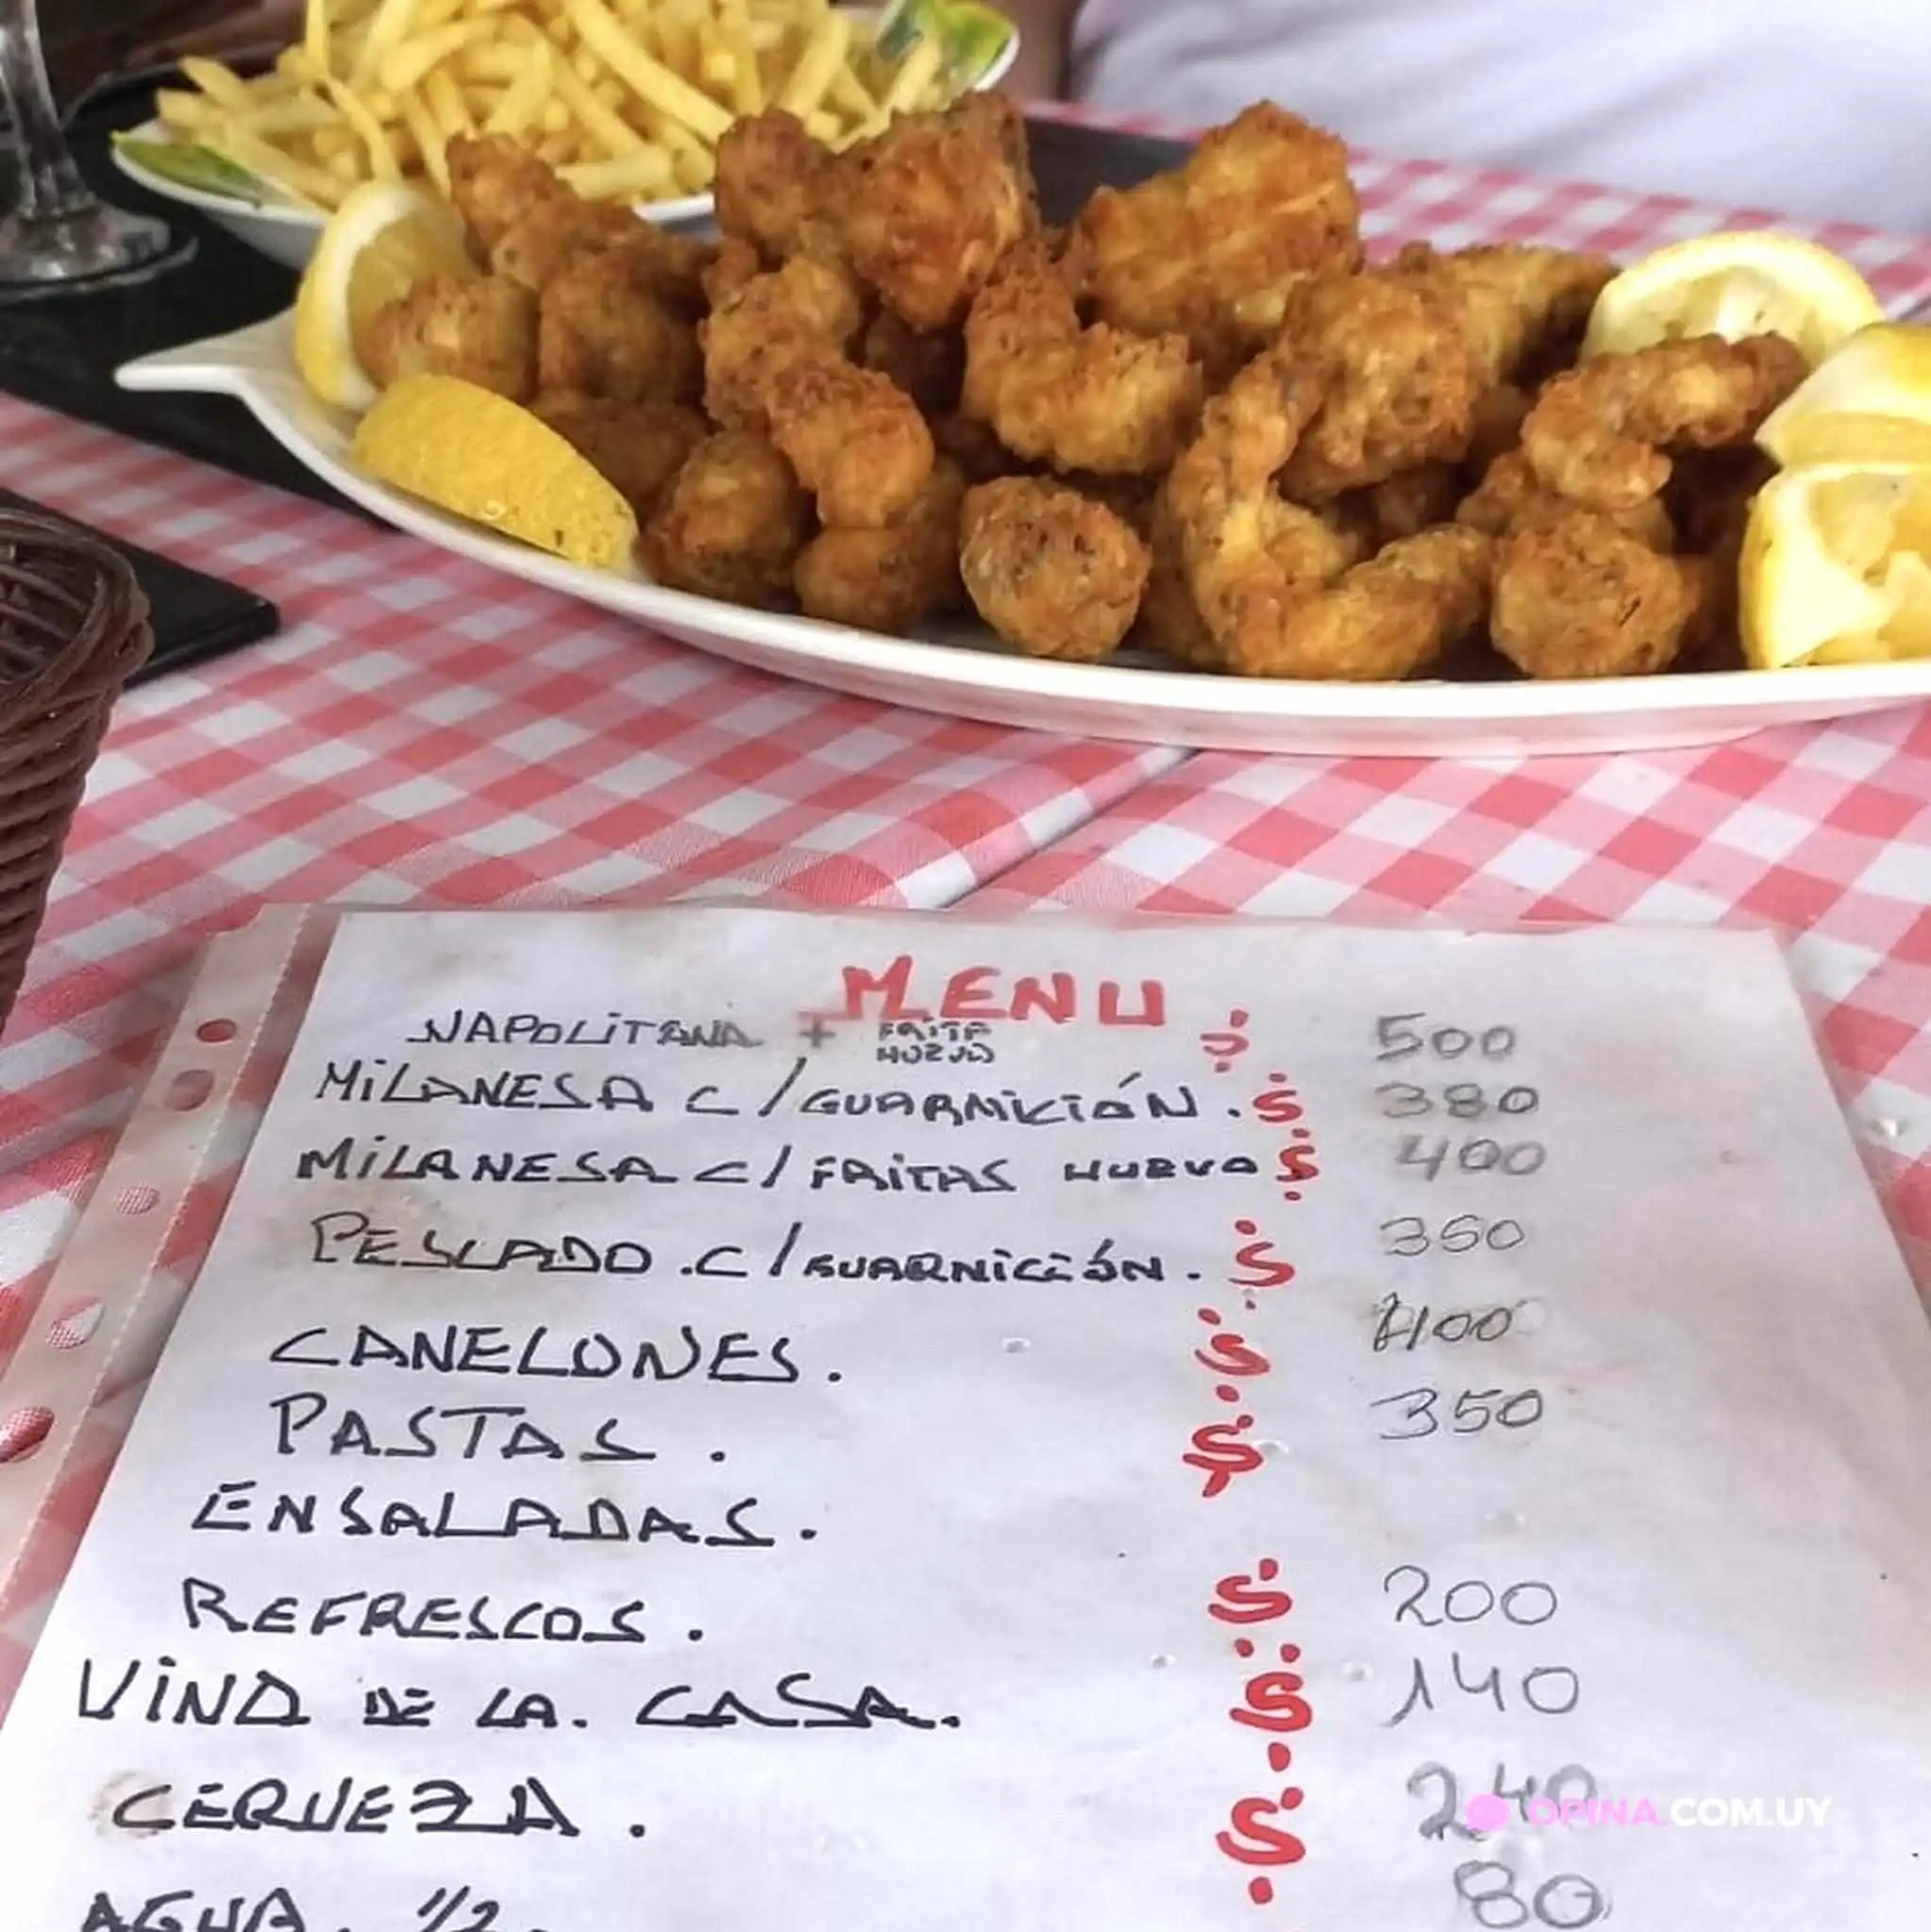 MENU
NAPOLITANA + FRITA HUEVO $ 500
MILANESA C/GUARNICIÓN . $ 380
MILANESA C/FRITAS HUEVO $ 400
PESCADO . C/GUARNICIÓN . $ 350
CANELONES . $ 400
PASTAS . $ 350
ENSALADAS .
REFRESCOS . $ 200
VINO DE LA . CASA . $ 140
CERVEZA . $ 240
OPINA.COM.UY
AGUA . 1/2 . 80